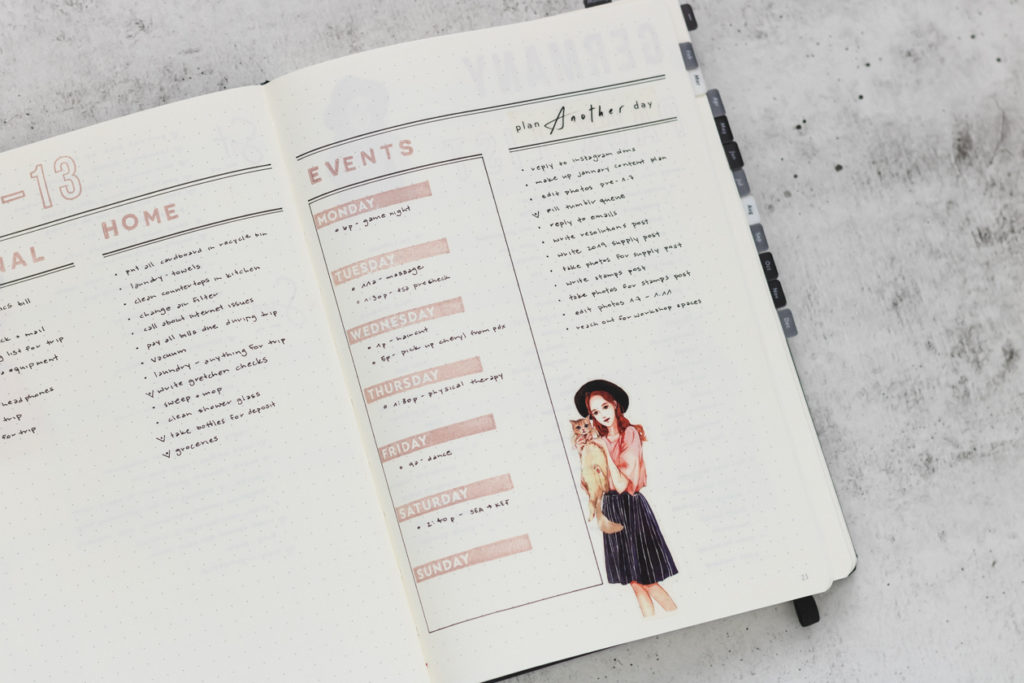 -13
NAL
bill
+ mail
list for trip
equipment
headphones
trip
for trip
HOME
• put all cardboard in recycle bin
• laundry - towels
• clean countertops in kitchen
• change air filter
• call about internet issues
• pay all bills due during trip
• vacuum
• laundry - anything for trip
write gretchen checks
• sweep + mop
• clean shower glass
take bottles for deposit
groceries
EVENTS
MONDAY
• 6p - game night
TUESDAY
• 11a - massage
• 1:30p - tsa precheck
WEDNESDAY
• 1p - haircut
• 5p - pick up cheryl from pdx
THURSDAY
• 1:30p - physical therapy
FRIDAY
• 9a - dance
SATURDAY
• 2:40p - SEA → KEF
SUNDAY
plan Another day
• reply to instagram dms
• make up january content plan
• edit photos pre-1.7
fill tumblr queue
• reply to emails
• write resolutions post
• write 2019 supply post
• take photos for supply post
• write stamps post
• take photos for stamps post
• edit photos 1.7 - 1.11
• reach out for workshop spaces
21
GERMANY
Mar
Apr
May
Jun
Jul
Aug
Sep
Oct
Nov
Dec